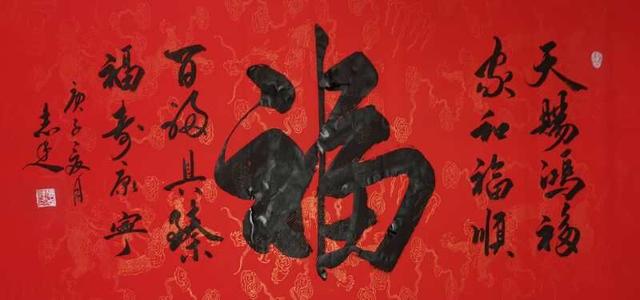 天赐鸿福
家和福顺
福
百福具臻
福寿康宁
庚子夏月
志廷